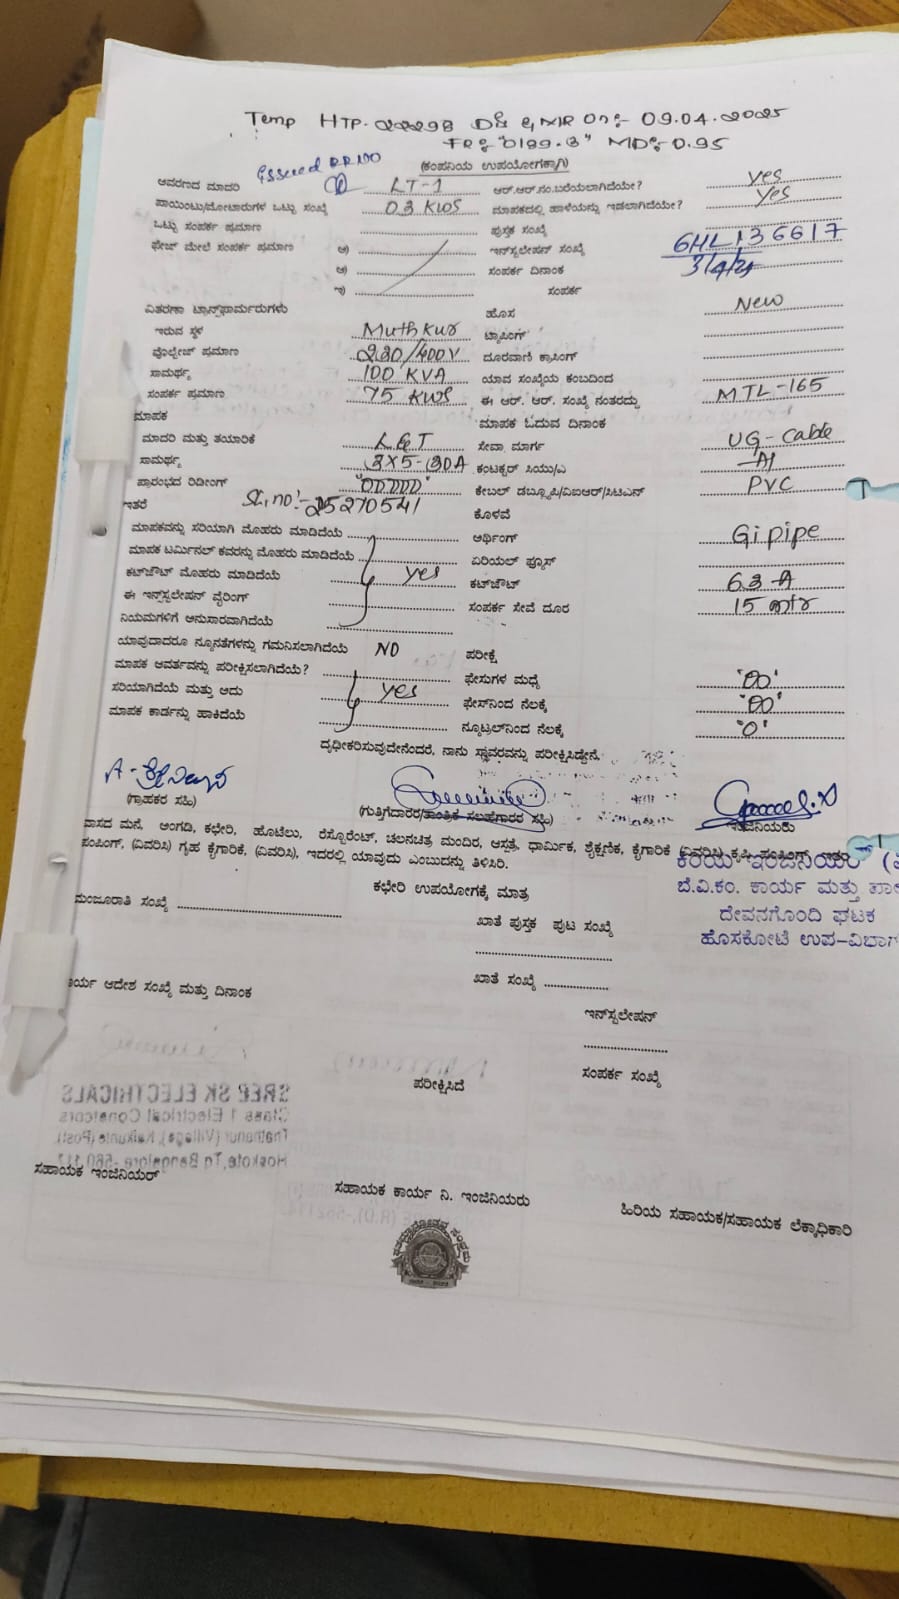 Temp HTP-22298 D& MR On:- 09.04.2025
FR:- "0199.3" MD:- 0.95
(ಕಂಪನಿಯ ಉಪಯೋಗಕ್ಕಾಗಿ)
Issued RR NO
ಆವರಣದ ಮಾದರಿ LT-1 ಆರ್.ಆರ್.ನಂ.ಬರೆಯಲಾಗಿದೆಯೇ? yes
ಪಾಯಿಂಟು/ಮೋಟಾರುಗಳ ಒಟ್ಟು ಸಂಖ್ಯೆ 03 KWS ಮಾಪಕದಲ್ಲಿ ಹಾಳೆಯನ್ನು ಇಡಲಾಗಿದೆಯೇ? yes
ಒಟ್ಟು ಸಂಪರ್ಕ ಪ್ರಮಾಣ ಪುಸ್ತಕ ಸಂಖ್ಯೆ
ಫೇಜ್ ಮೇಲೆ ಸಂಪರ್ಕ ಪ್ರಮಾಣ ಅ) ಇನ್‌ಸ್ಟಲೇಷನ್ ಸಂಖ್ಯೆ 6HL136617
ಆ) ಸಂಪರ್ಕ ದಿನಾಂಕ 3/4/25
ಇ) ಸಂಪರ್ಕ
ವಿತರಣಾ ಟ್ರಾನ್ಸ್‌ಫಾರ್ಮರುಗಳು ಹೊಸ New
ಇರುವ ಸ್ಥಳ Muthkur ಟ್ಯಾಪಿಂಗ್
ವೊಲ್ಟೇಜ್ ಪ್ರಮಾಣ 220/400V ದೂರವಾಣಿ ಕ್ರಾಸಿಂಗ್
ಸಾಮರ್ಥ್ಯ 100 KVA ಯಾವ ಸಂಖ್ಯೆಯ ಕಂಬದಿಂದ
ಸಂಪರ್ಕ ಪ್ರಮಾಣ 75 KWS ಈ ಆರ್. ಆರ್. ಸಂಖ್ಯೆ ನಂತರದ್ದು MTL-165
ಮಾಪಕ ಮಾಪಕ ಓದುವ ದಿನಾಂಕ
ಮಾದರಿ ಮತ್ತು ತಯಾರಿಕೆ L&T ಸೇವಾ ಮಾರ್ಗ UG-Cable
ಸಾಮರ್ಥ್ಯ 3X5-30A ಕಂಡಕ್ಟರ್ ಸಿಯು/ಎ Al
ಪ್ರಾರಂಭದ ರಿಡೀಂಗ್ ಕೇಬಲ್ ಡಬ್ಲ್ಯೂಪಿ/ವಿಐಆರ್/ಸಿಟಿಎಸ್ PVC
ಇತರೆ Sl.no:- 25270541 ಕೊಳವೆ
ಮಾಪಕವನ್ನು ಸರಿಯಾಗಿ ಮೊಹರು ಮಾಡಿದೆಯೆ ಆರ್ಥಿಂಗ್ Gi pipe
ಮಾಪಕ ಟರ್ಮಿನಲ್ ಕವರನ್ನು ಮೊಹರು ಮಾಡಿದೆಯೆ ಏರಿಯಲ್ ಫ್ಯೂಸ್
ಕಟ್‌ಔಟ್ ಮೊಹರು ಮಾಡಿದೆಯೆ yes ಕಟ್‌ಔಟ್ 63-A
ಈ ಇನ್ಸ್ಟಲೇಷನ್ ವೈರಿಂಗ್ ಸಂಪರ್ಕ ಸೇವೆ ದೂರ 15 mtr
ನಿಯಮಗಳಿಗೆ ಅನುಸಾರವಾಗಿದೆಯೆ
ಯಾವುದಾದರೂ ನ್ಯೂನತೆಗಳನ್ನು ಗಮನಿಸಲಾಗಿದೆಯೆ NO ಪರೀಕ್ಷೆ
ಮಾಪಕ ಆವರ್ತವನ್ನು ಪರೀಕ್ಷಿಸಲಾಗಿದೆಯೆ? ಫೇಸುಗಳ ಮಧ್ಯೆ
ಸರಿಯಾಗಿದೆಯೆ ಮತ್ತು ಅದು yes ಫೇಸ್‌ನಿಂದ ನೆಲಕ್ಕೆ
ಮಾಪಕ ಕಾರ್ಡನ್ನು ಹಾಕಿದೆಯೆ ನ್ಯೂಟ್ರಲ್‌ನಿಂದ ನೆಲಕ್ಕೆ "0"
ದೃಢೀಕರಿಸುವುದೇನೆಂದರೆ, ನಾನು ಸ್ಥಾವರವನ್ನು ಪರೀಕ್ಷಿಸಿದ್ದೇನೆ.
(ಗ್ರಾಹಕರ ಸಹಿ) (ಗುತ್ತಿಗೆದಾರರ/ತಾಂತ್ರಿಕ ಸಲಹೆಗಾರರ ಸಹಿ) ಇಂಜಿನಿಯರು
ವಾಸದ ಮನೆ, ಅಂಗಡಿ, ಕಛೇರಿ, ಹೊಟೆಲು, ರೆಸ್ಟೋರೆಂಟ್, ಚಲನಚಿತ್ರ ಮಂದಿರ, ಆಸ್ಪತ್ರೆ, ಧಾರ್ಮಿಕ, ಶೈಕ್ಷಣಿಕ, ಕೈಗಾರಿಕೆ (ವಿವರಿಸಿ) ಕೃಷಿ ಪಂಪಿಂಗ್, ಇತರ
ಪಂಪಿಂಗ್, (ವಿವರಿಸಿ) ಗೃಹ ಕೈಗಾರಿಕೆ, (ವಿವರಿಸಿ), ಇದರಲ್ಲಿ ಯಾವುದು ಎಂಬುದನ್ನು ತಿಳಿಸಿರಿ.
ಕಿರಿಯ ಇಂಜಿನಿಯರ್
ಬೆ.ವಿ.ಕಂ. ಕಾರ್ಯ ಮತ್ತು
ದೇವನಗೊಂದಿ ಘಟಕ
ಹೊಸಕೋಟೆ ಉಪ-ವಿಭಾಗ
ಕಛೇರಿ ಉಪಯೋಗಕ್ಕೆ ಮಾತ್ರ
ಮಂಜೂರಾತಿ ಸಂಖ್ಯೆ ಖಾತೆ ಪುಸ್ತಕ ಪುಟ ಸಂಖ್ಯೆ
ಕಾರ್ಯ ಆದೇಶ ಸಂಖ್ಯೆ ಮತ್ತು ದಿನಾಂಕ ಖಾತೆ ಸಂಖ್ಯೆ
ಇನ್‌ಸ್ಟಲೇಷನ್
ಪರೀಕ್ಷಿಸಿದೆ ಸಂಪರ್ಕ ಸಂಖ್ಯೆ
SREE SK ELECTRICALS
Class 1 Electrical Conatctors
Thathanur (Village), Kalkunte (Post),
Hoskote,Tn Bangalore
ಸಹಾಯಕ ಇಂಜಿನಿಯರ್ ಸಹಾಯಕ ಕಾರ್ಯ ನಿ. ಇಂಜಿನಿಯರು ಹಿರಿಯ ಸಹಾಯಕ/ಸಹಾಯಕ ಲೆಕ್ಕಾಧಿಕಾರಿ